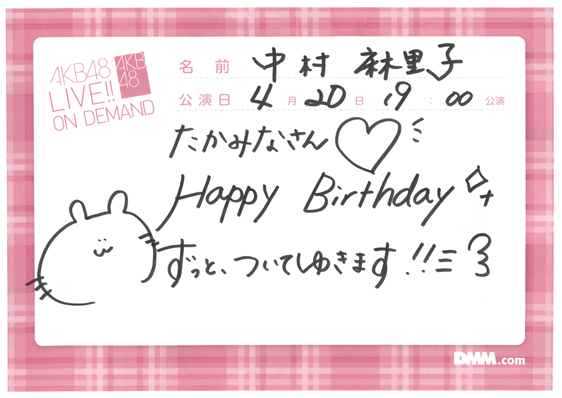 AKB48
LIVE!!
ON DEMAND
AKB
48
名前 中村 麻里子
公演日 4月20日 19:00公演
たかみなさん♡
Happy Birthday
ずっと、ついてゆきます!!
DMM.com